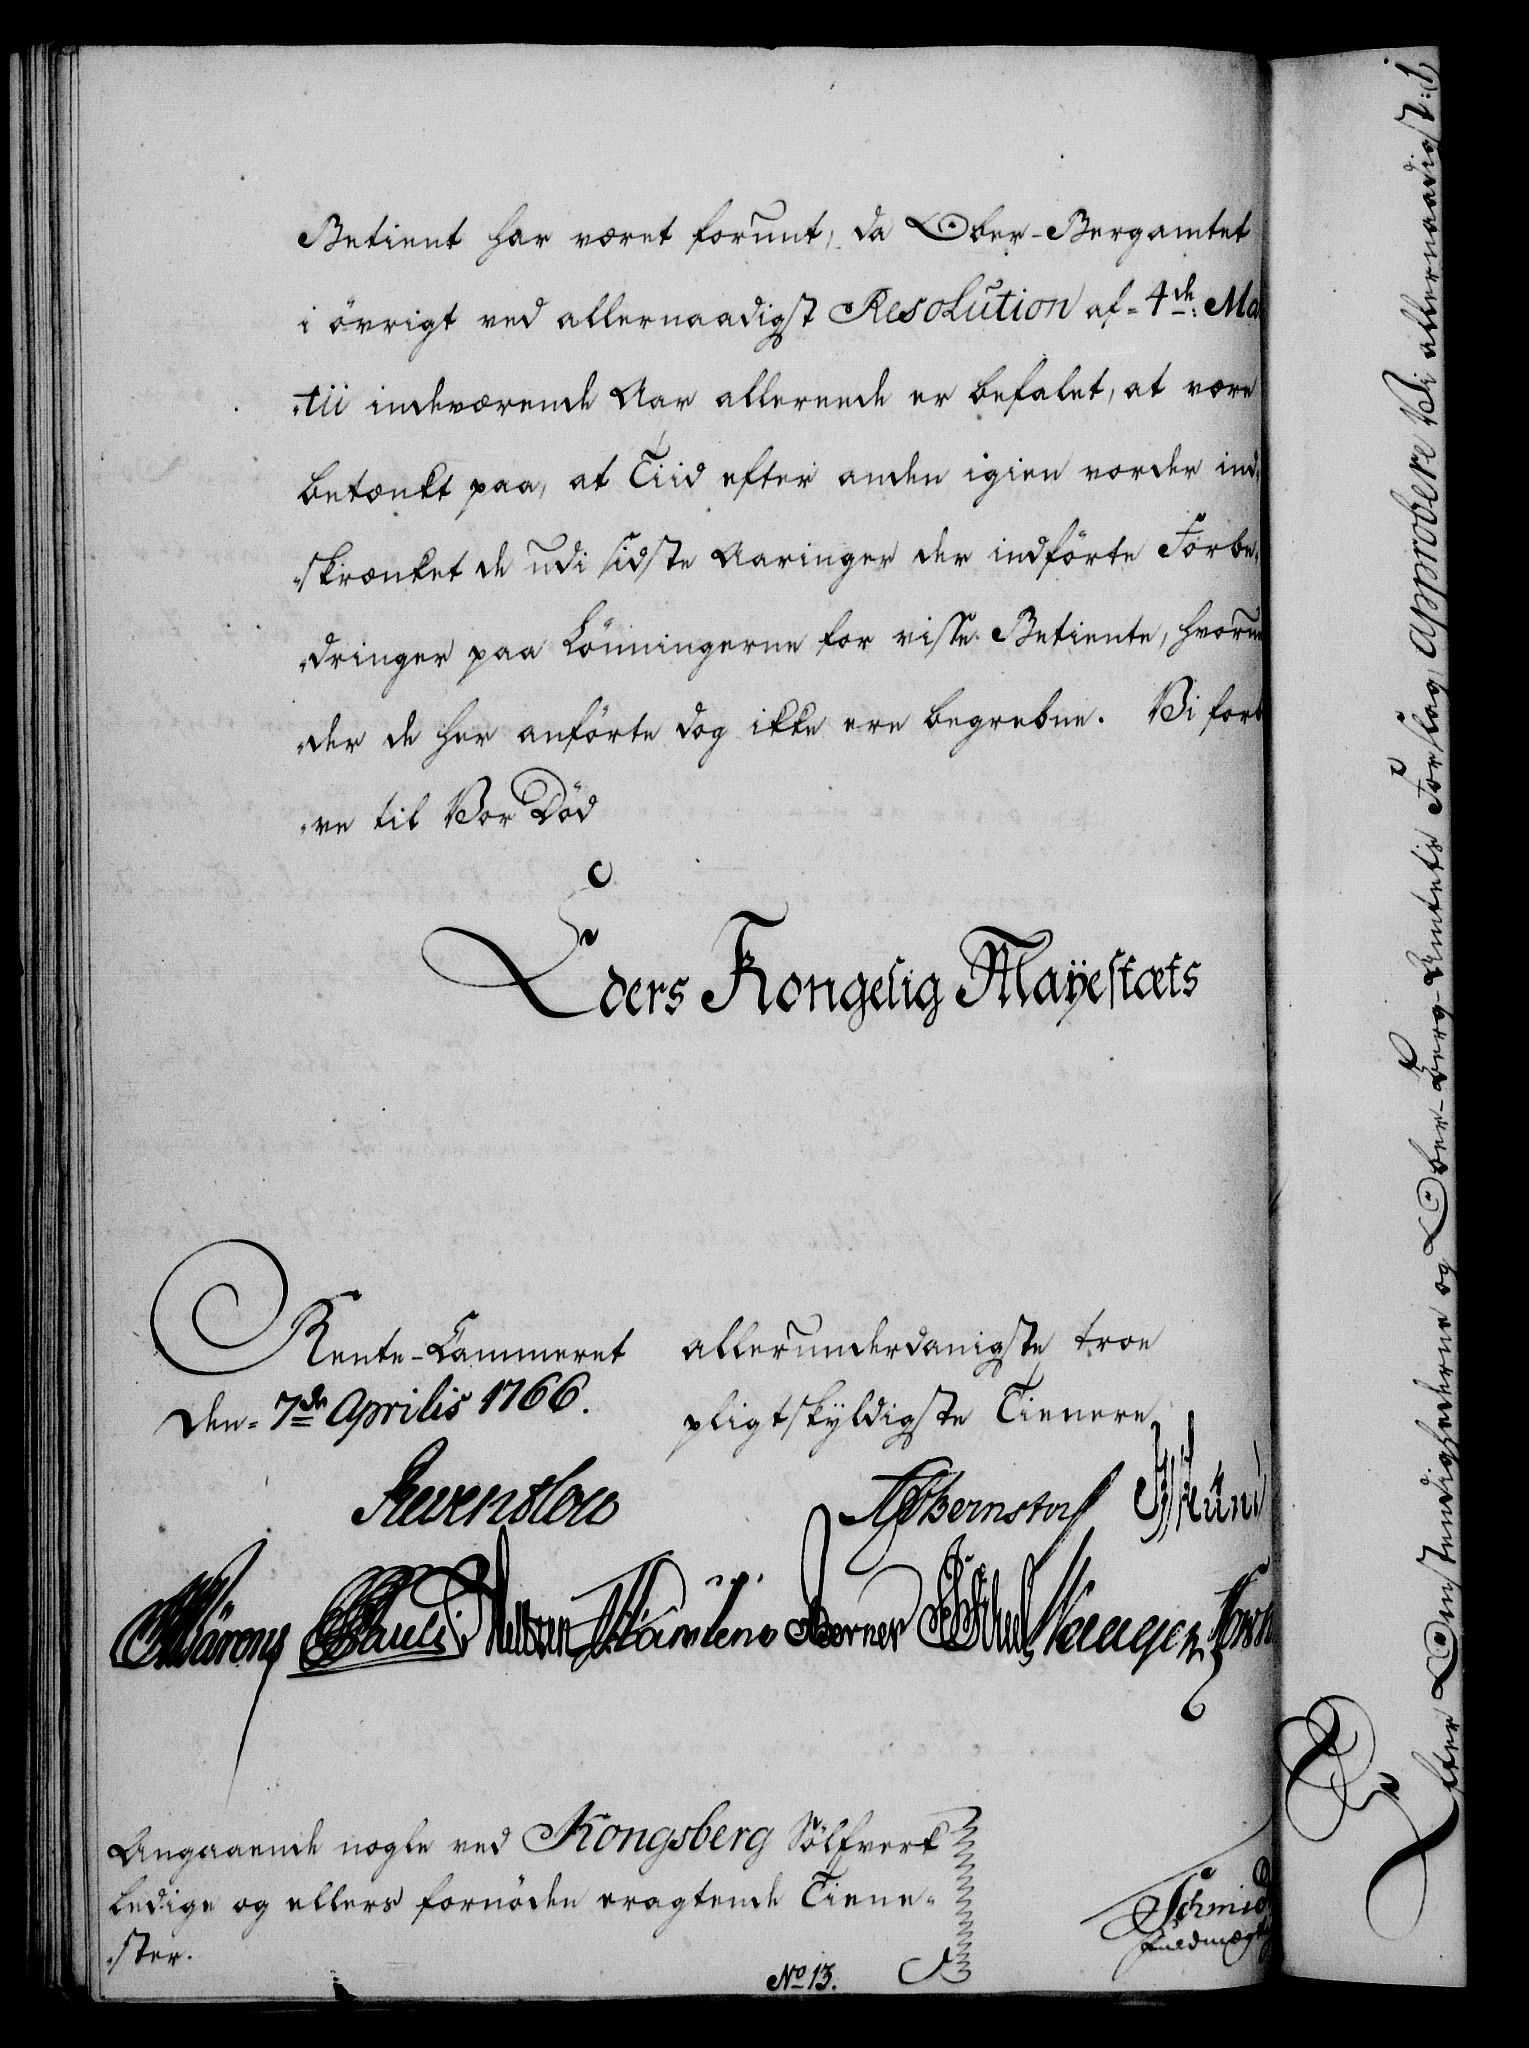 Betient har været forunt, da Ober-Bergamtet
i övrigt ved allernaadigst Resolution af 4de: Ma
tii indeværende Aar allerede er befalet, at være
betænkt paa, at Tiid efter anden igien vorder ind-
skrænket de udi sidste Aaringer der indförte Forbe-
dringer paa Lönningerne for visse Betiente, hvorun
der de her anförte dog ikke ere begrebne. Vi forb
ve til Vor Död
Eders Kongelig Mayestæts
Rente-Cammeret allerunderdanigste troe
den 7de Aprilis 1766. pligtskyldigste Tienere
Reventlow AGBernstorf
Pauli Nielsen Berner
Angaaende nogle ved Kongsberg Sölfverk
ledige og ellers fornöden eragtende Tiene-
ster.
No 13.
Schmid
Fuldmægtig
Efter Omstændighederne og Ober-Berg-Amtets Forslag, approbere Vi allernaadigst: 1.)